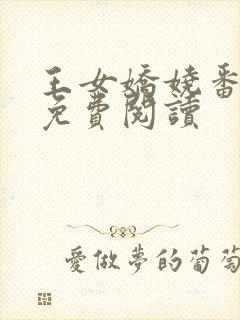 王女嬌嬈番
免費閱讀
愛做夢的葡萄